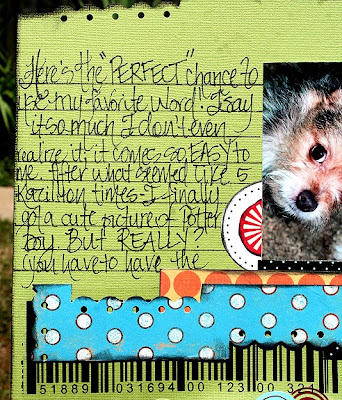 Here's the "PERFECT" chance to
use my favorite word! I say
it so much I don't even
realize it; it comes so EASY to
me. After what seemed like 5
kazillion times I finally
got a cute picture of Potter
Boy. But REALLY?
(you have to have the
51889 031694 00 123 00 321